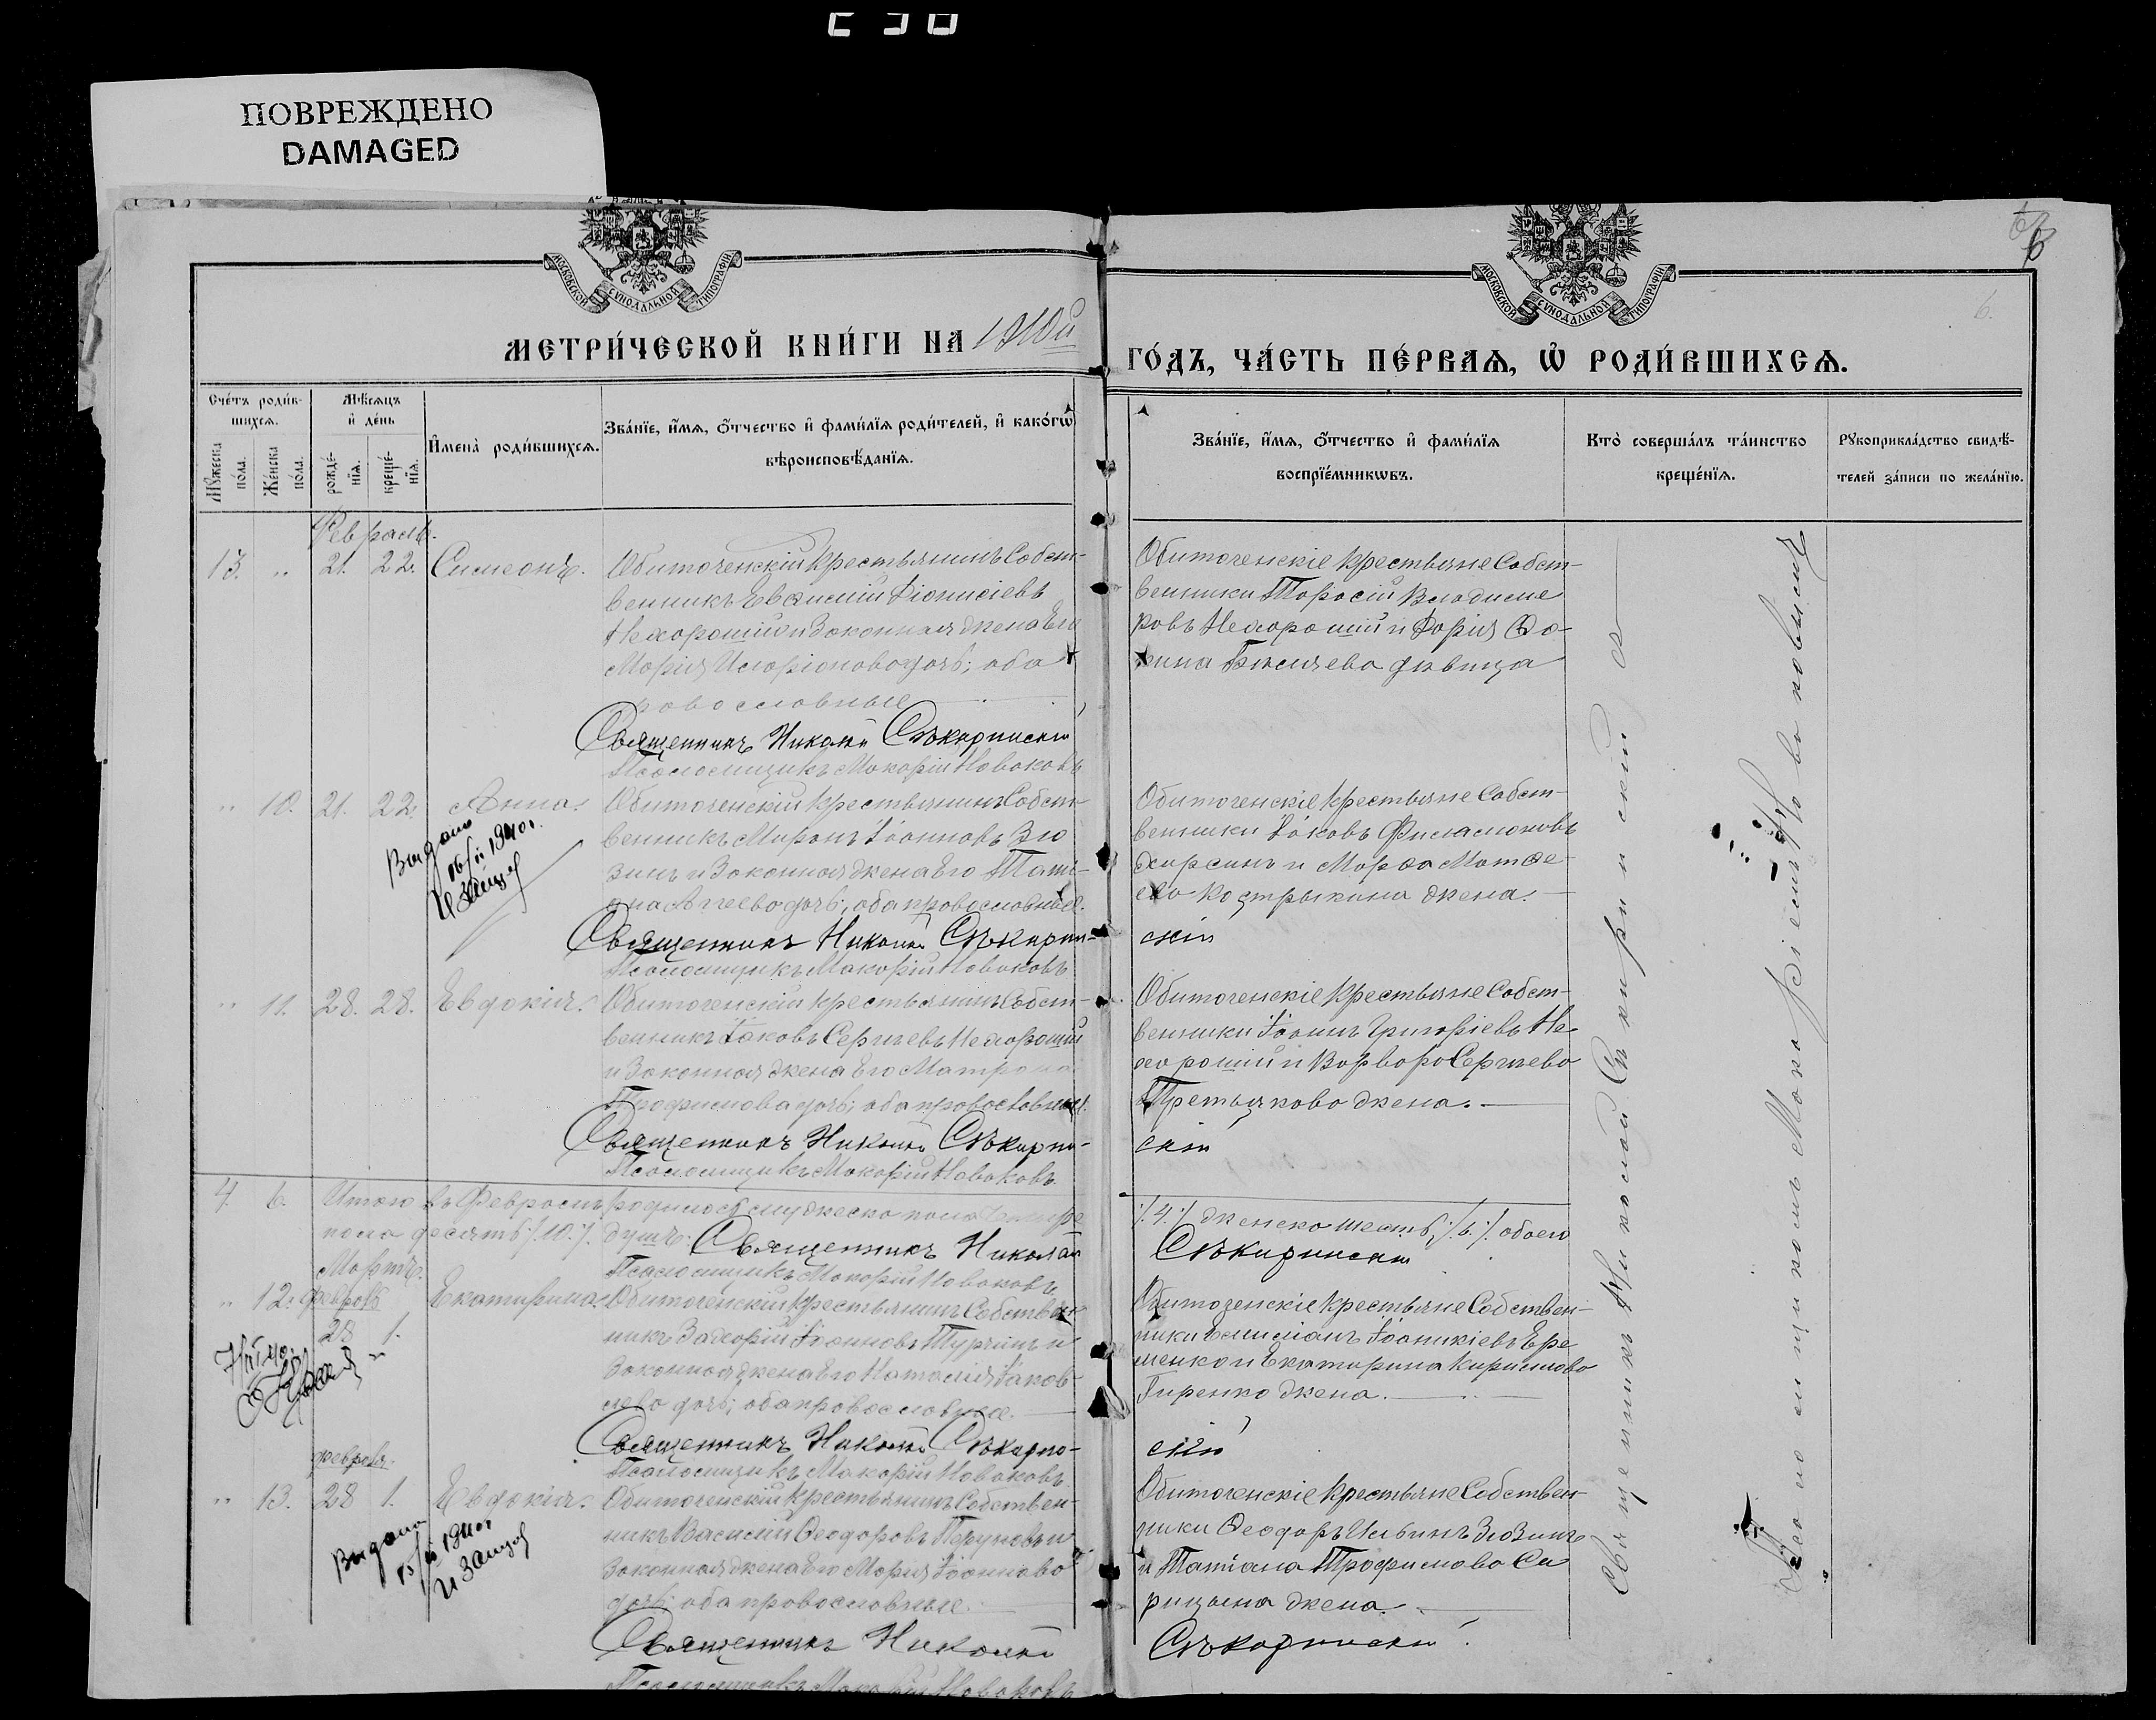 ПОВРЕЖДЕНО
DAMAGED
МОСКОВСКОЙ СѴНОДАЛЬНОЙ ТИПОГРАФІИ
МОСКОВСКОЙ СѴНОДАЛЬНОЙ ТИПОГРАФІИ
6
6.
МЕТРИ́ЧЕСКОЙ КНИ́ГИ НА 1910й
ГО́ДЪ, ЧА́СТЬ ПЕ́РВАѦ, Ѡ҆ РОДИ́ВШИХСѦ.
Счéтъ роди́в-
шихсѧ.
Мꙋ́жеска по́ла.
Же́нска по́ла.
Мѣ́сѧцъ
и҆ де́нь
рожде́-
нїѧ.
креще́-
нїѧ.
И҆мена̀ роди́вшихсѧ.
Зва́нїе, и҆́мѧ, ѻ҆́тчество и҆ фами́лїѧ роди́телей, и҆ како́гѡ
вѣроисповѣ́данїѧ.
Зва́нїе, и҆́мѧ, ѻ҆́тчество и҆ фами́лїѧ
воспрїе́мникѡвъ.
Кто̀ соверша́лъ та́инство
креще́нїѧ.
Рꙋкоприкла́дство свидѣ́-
телей за́писи по жела́нїю.
Февраль.
13. „ 21. 22. Симеонъ.
Обиточенскій крестьянинъ Собст-
венникъ Евѳимій Діонисіевъ
Нехорошій и Законная жена Его
Марія Иларіонова дочь; оба
православные
Священникъ Николай Съкиринскій
Псаломщикъ Макарій Новаковъ
Обиточенскіе крестьяне Собст-
венники Тарасій Владиме
ровъ Нехорошій и Дарія Ѳо-
мина дѣвица
„ 10. 21. 22. Анна.
Выдано
16/II 1940г.
Обиточенскій крестьянинъ Собст-
венникъ Миронъ Іоанновъ Зю
зинъ и Законная жена Его Тати-
ана дочь; оба православные.
Священникъ Николай Съкирин-
скій
Псаломщикъ Макарій Новаковъ
Обиточенскіе крестьяне Собст-
венники Іаковъ Филимоновъ
и Марѳа Матѳе-
ева Кострыкина жена.
„ 11. 28. 28. Евдокія.
Обиточенскій крестьянинъ Собст-
венникъ Іаковъ Сергіевъ Нехорошій
и Законная жена Его Матрона
Трофимова дочь; оба православные.
Священникъ Николай Съкирин-
скій
Псаломщикъ Макарій Новаковъ
Обиточенскіе крестьяне Собст-
венники Іоаннъ Григоріевъ Не
хорошій и Варвара Сергіева
Третьякова жена.
4. 6. Итого въ Февралѣ родилось мужеска пола четыре
./.4./. женска шесть ./.6./. обоего
пола десять ./.10./. душъ. Священникъ Николай
Съкиринскій
Псаломщикъ Макарій Новаковъ
Мартъ.
„ 12. февраль 28 1. Екатирина.
Обиточенскій крестьянинъ Собствен-
никъ Захарій Іоанновъ Турчинъ и
Законная жена Его Наталія Іаков-
лева дочь; оба православные.
Священникъ Николай Съкирин-
скій
Псаломщикъ Макарій Новаковъ
Обиточенскіе крестьяне Собствен-
ники Емиліанъ Іоаникіевъ Ере
менко и Екатирина Кирилова
Гиренко жена.
февраль.
„ 13. 28 1. Евдокія.
Выдано
1940г
Обиточенскій крестьянинъ Собствен-
никъ Василій Ѳеодоровъ Перуновъ и
Законная жена Его Марія Іоаннова
дочь; оба православные.
Священникъ Николай
Съкиринскій
Псаломщикъ Макарій Новаковъ
Обиточенскіе крестьяне Собствен-
ники Ѳеодоръ Ильинъ Зюзинъ
и Татіана Трофимова Си
рицына жена.
Священникъ Николай Съкиринскій
Псаломщикомъ Макаріемъ Новаковымъ